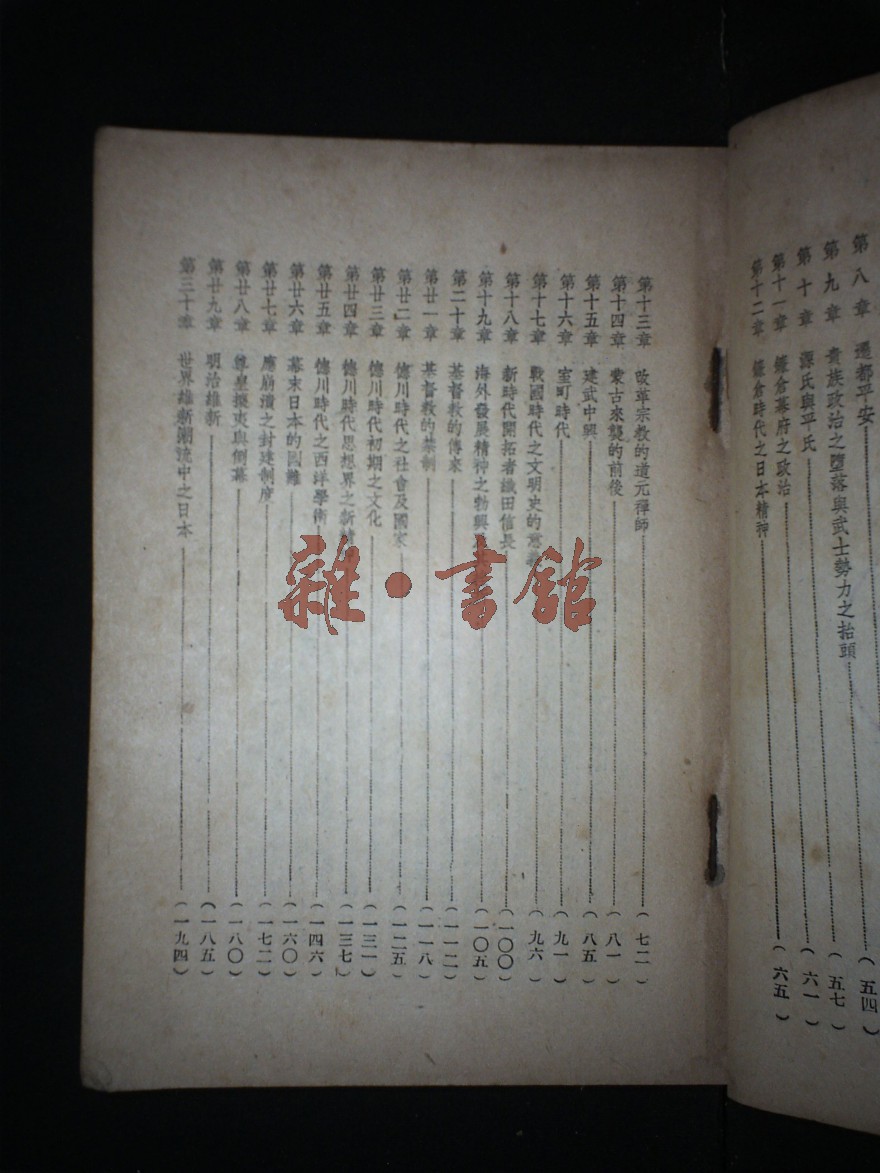 第八章 遷都平安……(五四)
第九章 貴族政治之墮落與武士勢力之抬頭……(五七)
第十章 源氏與平氏……(六一)
第十一章 鎌倉幕府之政治……(六五)
第十二章 鎌倉時代之日本精神……
第十三章 改革宗教的道元禪師……(七二)
第十四章 蒙古來襲的前後……(八一)
第十五章 建武中興……(八五)
第十六章 室町時代……(九一)
第十七章 戰國時代之文明史的意義……(九六)
第十八章 新時代開拓者織田信長……(一〇〇)
第十九章 海外發展精神之勃興……(一〇五)
第二十章 基督教的傳來……(一一二)
第廿一章 基督教的禁制……(一一八)
第廿二章 德川時代之社會及國家……(一二五)
第廿三章 德川時代初期之文化……(一三一)
第廿四章 德川時代思想界之新……(一三七)
第廿五章 德川時代之西洋學術……(一四六)
第廿六章 幕末日本的國難……(一六〇)
第廿七章 應崩潰之封建制度……(一七二)
第廿八章 尊皇攘夷與倒幕……(一八〇)
第廿九章 明治維新……(一八五)
第三十章 世界維新潮流中之日本……(一九四)
雜·書館